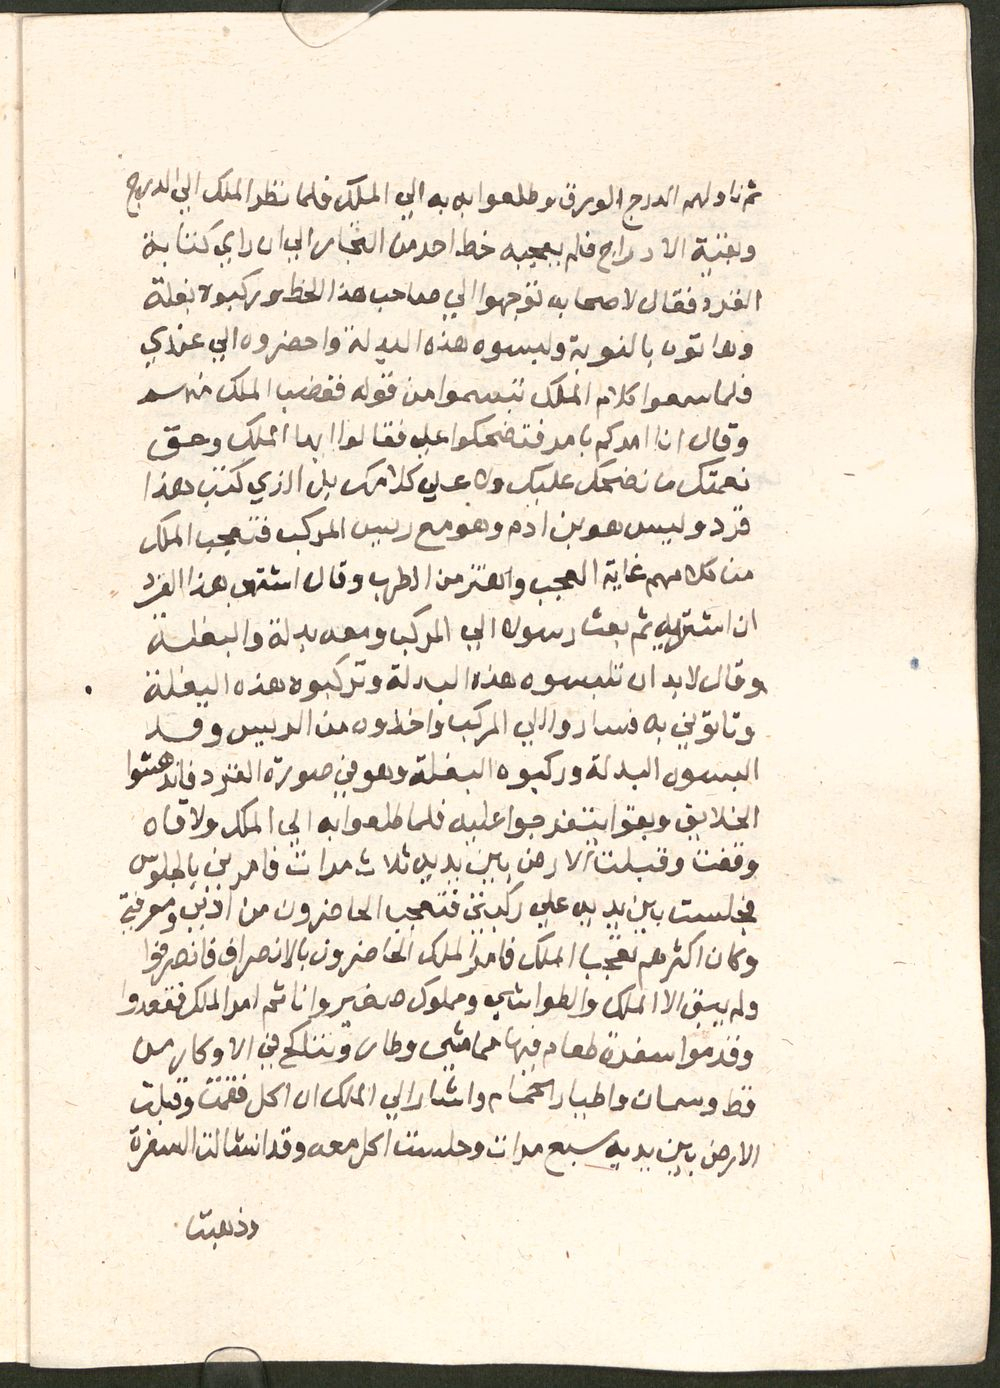 ثم ناولهم الدرج الورق وطلعوا به الي الملك فلما نظر الملك الي الدرج
وبقية الادراج فلم يعجبه خط احد من التجار الي ان راي كتابة
القرد فقال لاصحابه توجهوا الي صاحب هذا الخط وركبوه بغلة
وهاتوه بالنوبة ولبسوه هذه البدلة واحضروه الي عندي
فلما سمعوا كلام الملك تبسموا من قوله فغضب الملك منهم
وقال انا امركم بامر فتضحكوا علي فقالوا ايها الملك وحق
نعمتك ما نضحك عليك ولا علي كلامك بل الذي كتب هذا
قرد وليس هو بن ادم وهو مع رييس المركب فتعجب الملك
من كلامهم غاية العجب واهتز من الطرب وقال اشتهي بهذا القرد
ان اشتريه ثم بعث رسولا الي المركب ومعه بدلة والبغلة
وقال لا بد ان تلبسوه هذه البدلة وتركبوه هذه البغلة
وتاتوني به فساروا الي المركب واخذوه من الرييس وقد
البسوه البدلة وركبوه البغلة وهو في صورة القرد فاندهشوا
الخلايق وبقوا يتفرجوا عليه فلما طلعوا به الي الملك ولاقاه
وقفت وقبلت الارض باين يديه ثلاث مرات فامرني بالجلوس
فجلست باين يديه علي ركبتي فتعجب الحاضرون من ادبي ومعرفتي
وكان اكثرهم تعجبا الملك فامر الملك الحاضرون بالانصراف فانصرفوا
ولم يبق الا الملك والطواشي ومملوك صغير وانا ثم امر الملك فقعدوا
وقدموا سفرة طعام فيها مما مشي وطار وتناكح في الاوكار من
قط وسمان واطيار الحمام واشار الي الملك ان اكل فقمت وقبلت
الارض باين يديه سبع مرات وجلست اكل معه وقد انشالت السفرة
وذهبت